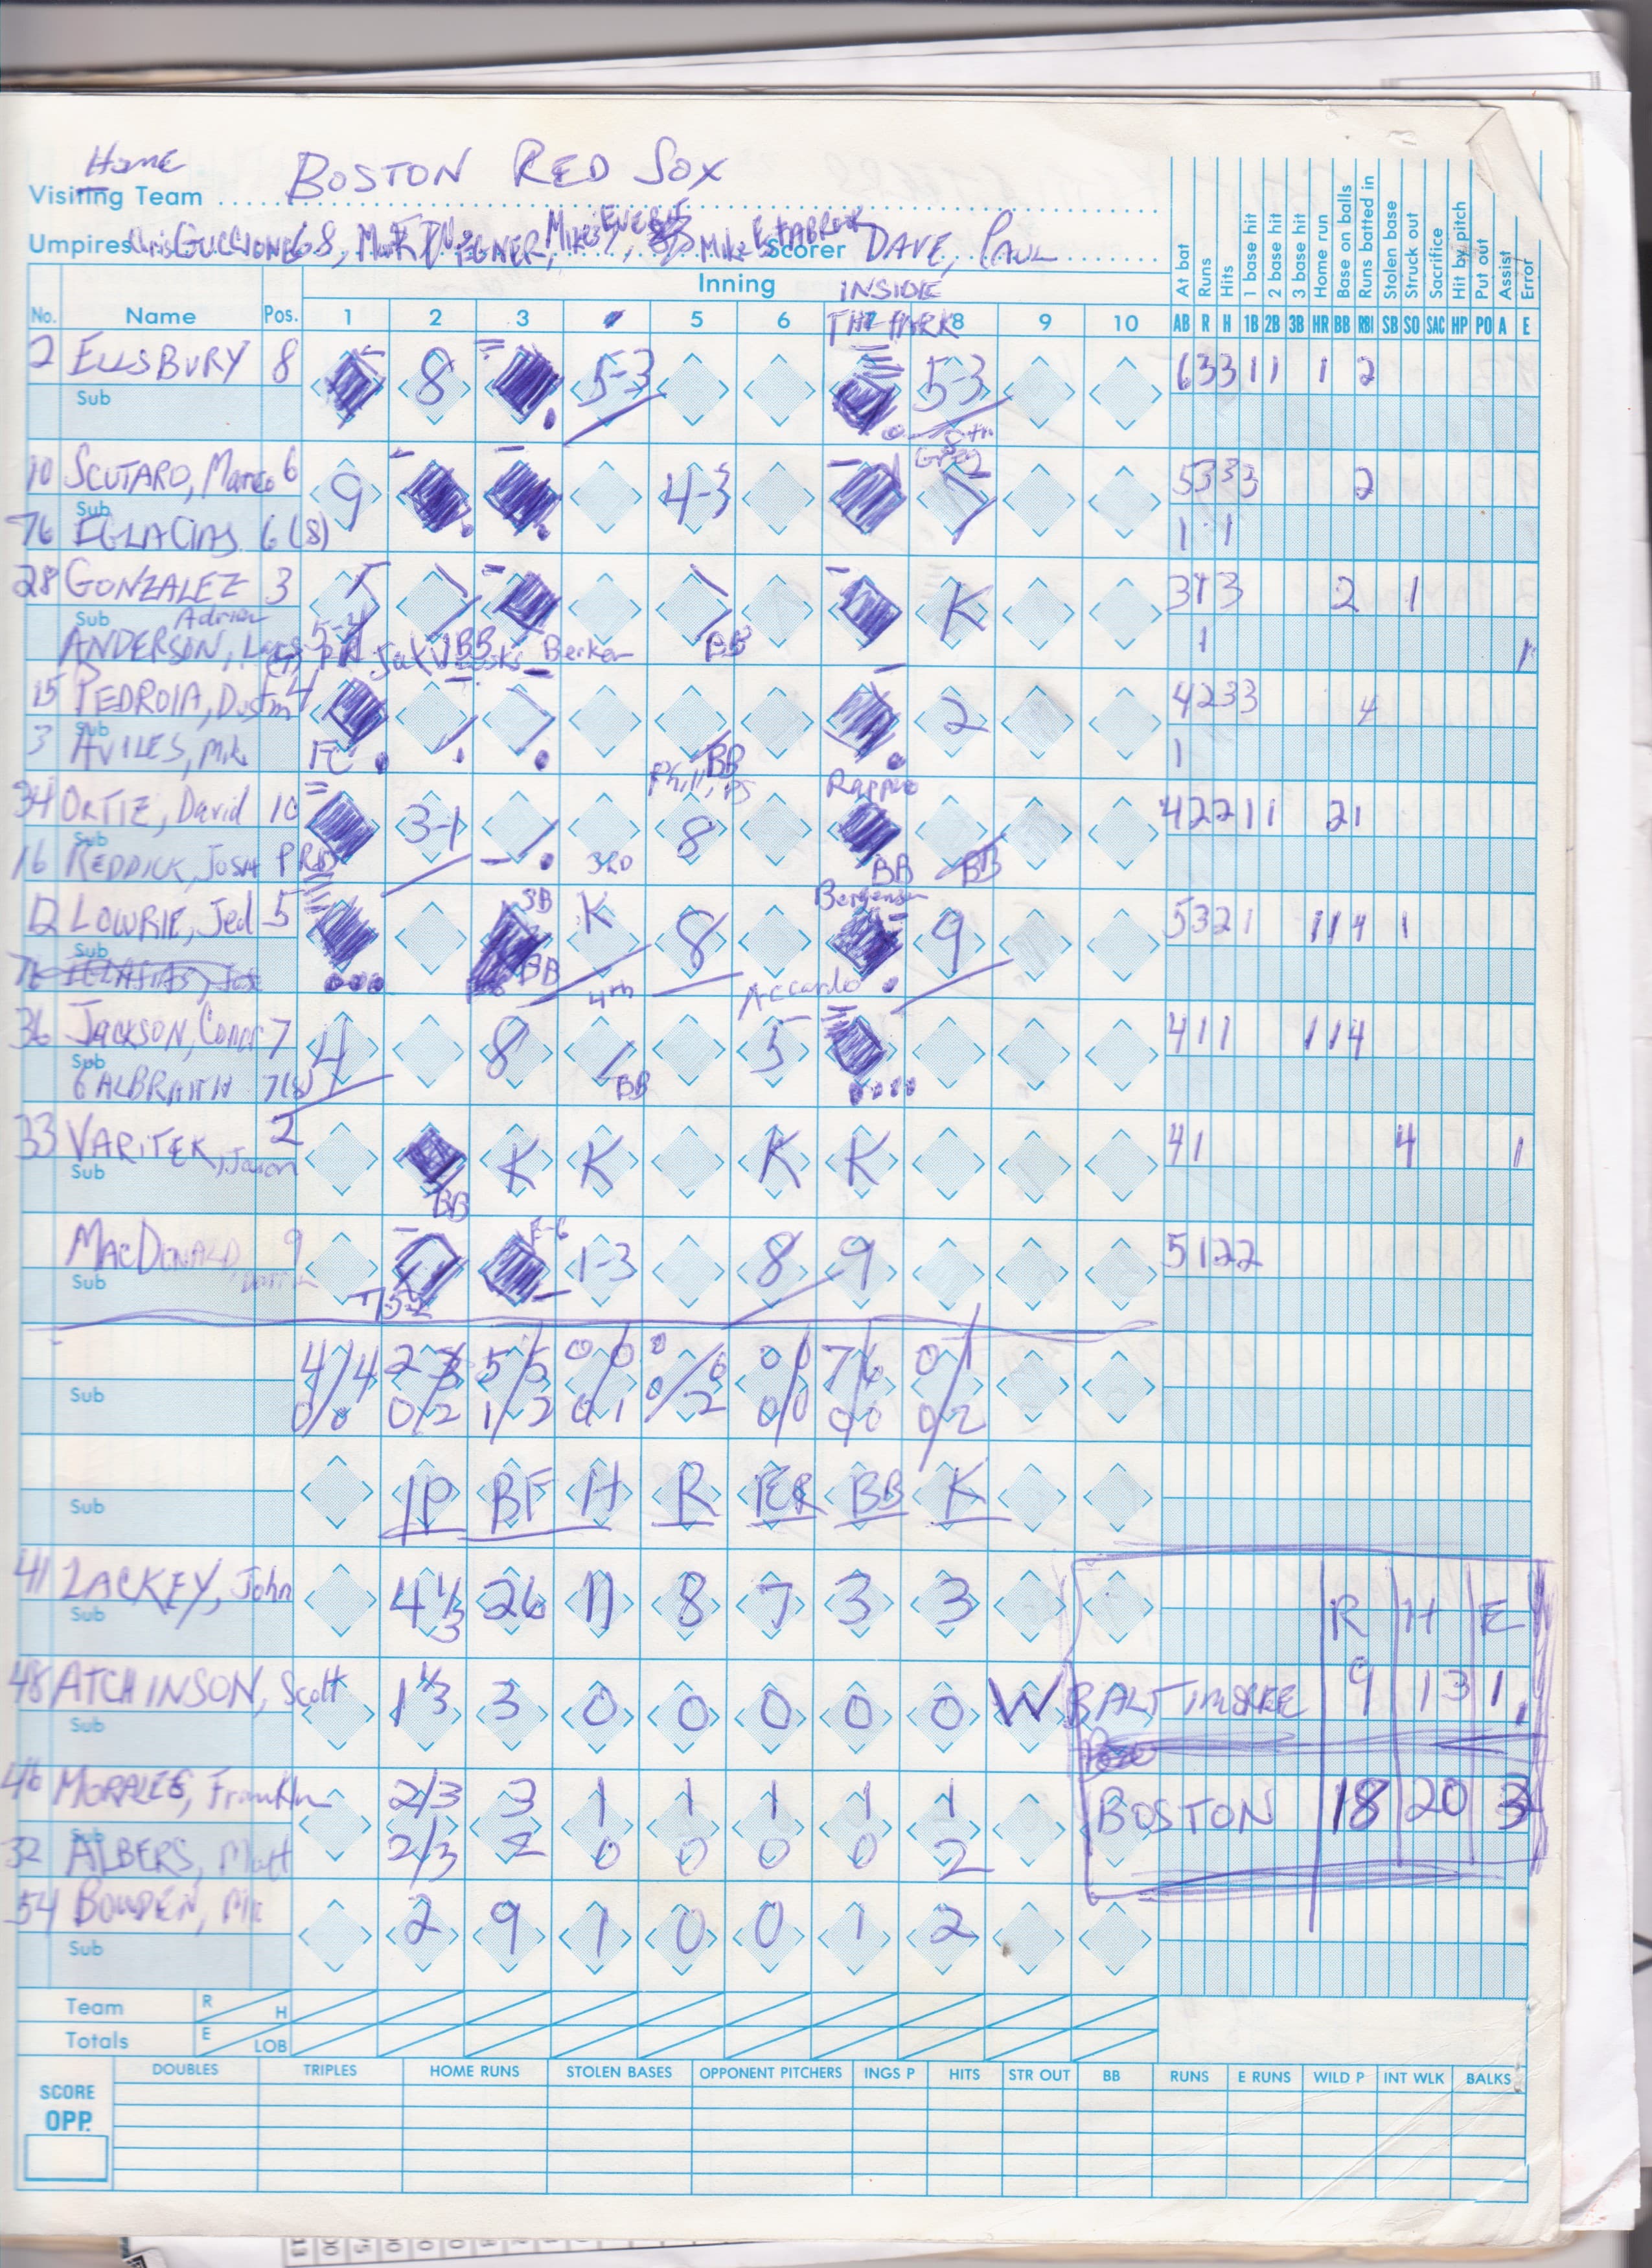 Home
BOSTON RED SOX
Visiting Team
Umpires Chris GUCCIONE 68, Scorer DAVE, PAUL
Inning INSIDE THE PARK
No. Name Pos. 1 2 3 5 6 8 9 10 AB R H 1B 2B 3B HR BB RBI SB SO SAC HP PO A E
At bat Runs Hits 1 base hit 2 base hit 3 base hit Home run Base on balls Runs batted in Stolen base Struck out Sacrifice Hit by pitch Put out Assist Error
2 ELLSBURY 8 8 5-3 5-3 6 3 3 1 1 1 2
Sub
10 SCUTARO, Marco 6 9 4-3 5 3 3 3 2
Sub
76 EGLACIAS 6 (8) 1 1
28 GONZALEZ 3 K 3 1 3 2 1
Sub Adrian
ANDERSON, BB Berken BB 1 1
15 PEDROIA, Dustin 4 2 4 2 3 3 4
Sub
3 AVILES, Mike FC BB 1
34 ORTIZ, David 10 3-1 8 BB BB 4 2 2 1 1 2 1
Sub
16 REDDICK, Josh 3RD
12 LOWRIE, Jed 5 SB BB K 8 9 5 3 2 1 1 1 4 1
Sub
4th Accardo
36 JACKSON, Conor 7 4 8 BB 5 4 1 1 1 1 4
Sub
33 VARITEK, Jason 2 BB K K K K 4 1 4 1
Sub
MACDONALD 9 E-6 1-3 8 9 5 1 2 2
Sub
4/4 5/5 0/0 0/0 0/0 7/6 0/1
Sub 0/0 0/2 1/2 0/1 0/2 0/0 0/0 0/2
IP BF H R ER BB K
Sub
41 LACKEY, John 4 1/3 26 11 8 7 3 3
Sub
R H E
48 ATCHINSON, Scott 1 1/3 3 0 0 0 0 0 W BALTIMORE 9 13 1
Sub
46 MORALES, Franklin 2/3 3 1 1 1 1 1 BOSTON 18 20 3
Sub
32 ALBERS, Matt 2/3 2 0 0 0 0 2
54 BOWDEN, 2 9 1 0 0 1 2
Sub
Team R H
Totals E LOB
SCORE OPP. DOUBLES TRIPLES HOME RUNS STOLEN BASES OPPONENT PITCHERS INGS P HITS STR OUT BB RUNS E RUNS WILD P INT WLK BALKS